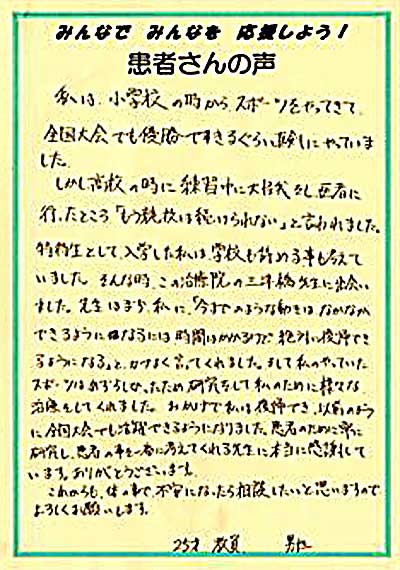 みんなで みんなを 応援しよう！
患者さんの声
私は、小学校の時から、スポーツをやってきて、
全国大会でも優勝できるぐらい真剣にやっていま
した。
しかし高校の時に練習中に大怪我をし医者に
行ったところ「もう競技は続けられない」と言われました。
特待生として、入学した私は、学校も辞める事も考えて
いました。そんな時、この治療院の三津橋先生に出会い
ました。先生はまず、私に、「今までのような動きはなかなか
できるようになるには時間はかかるけど、絶対に復帰でき
るようになる」と、力づよく言ってくれました。そして私のやっていた
スポーツはめずらしかったため研究をして私のために様々な
治療をしてくれました。おかげで私は復帰でき、以前のよう
に全国大会でも活躍できるようになりました。患者のために常に
研究し、患者の事を一番に考えてくれる先生に本当に感謝して
います。ありがとうございます。
これからも、体の事で、不安になったら相談したいと思いますので
よろしくお願いします。
25才 教員 男性